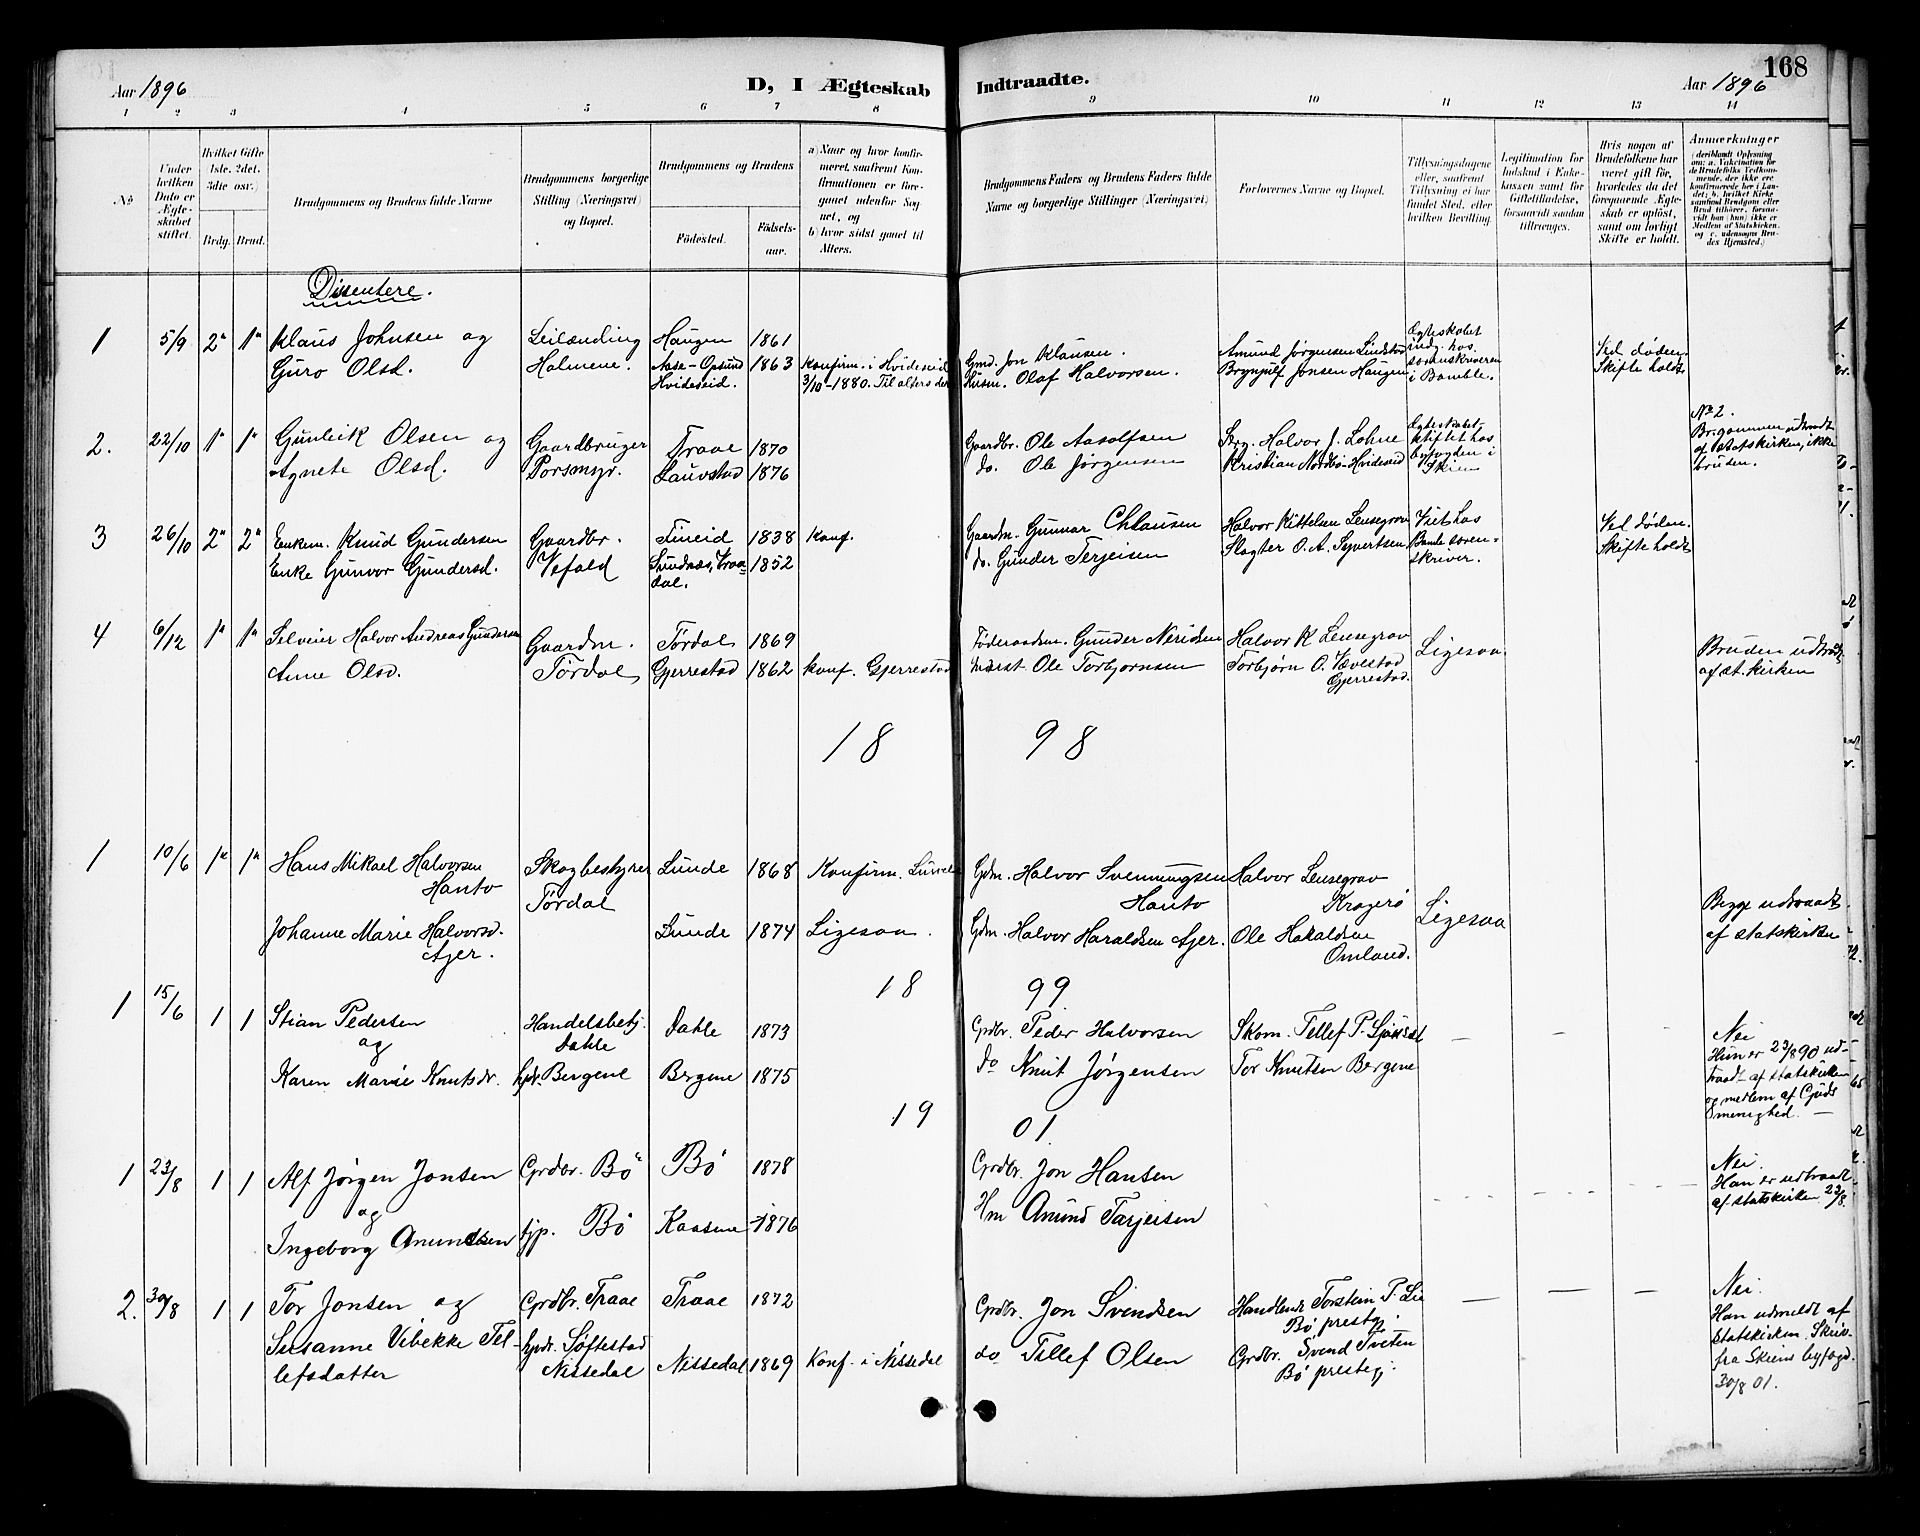 168
Aar 1896
D, I Ægteskab Indtraadte.
Aar 1896
1 2 3 4 5 6 7 8 9 10 11 12 13 14
No
Under hvilken Dato er Ægteskabet stiftet.
Hvilket Gifte 1ste. 2det. 3die osv.)
Brdg. Brud.
Brudgommens og Brudens fulde Navne
Brudgommens borgerlige Stilling (Næringsvei) og Bopæl.
Brudgommens og Brudens
Fødested.
Fødselsaar.
a) Naar og hvor konfirmeret, saafremt Konfirmationen er foregaaet udenfor Sognet, og
b) hvor sidst gaaet til Alters.
Brudgommens Faders og Brudens Faders fulde Navne og borgerlige Stillinger (Næringsvei)
Forlovernes Navne og Bopæl.
Tillysningsdagene eller, saafremt Tillysning ei har fundet Sted, efter hvilken Bevilling.
Legitimation for Indskud i Enkekassen samt for Giftetilladelse, forsaavidt saadan tiltrænges.
Hvis nogen af Brudefolkene har været gift før, hvorledes da det foregaaende Ægteskab er opløst, samt om lovligt Skifte er holdt.
Anmærkninger
(deriblandt Oplysning om: a. Vakcination for de Brudefolks Vedkommende, der ikke ere konfirmerede her i Landet; b. hvilket Kirkesamfund Brudgom eller Brud tilhører, forsaavidt han (hun) ikke er Medlem af Statskirken. og c. udensogns Brudes Hjemsted.)
Dissentere.
1 5/9 2n 1n Klaus Johnsen og Leilænding Haugen 1861
Guro Olsd. Holmene. Aase-Opsund Hvideseid. 1863 Konfirm. i Hvideseid 3/10-1880. Til alters der
Gmd. Jon Klausen. Amund Jørgensen Lindstad
Husm. Olaf Halvorsen. Brynjulf Jonsen Haugen
Ægteskabet indg. hos sorenskriveren i Bamble.
Ved døden. Skifte holdt
2. 22/10 1n 1n Gunleik Olsen og Gaardbruger Traae 1870
Agnete Olsd. Porsongr. Lauvstad 1876
Gaardbr. Ole Aasolfsen Halvor J. Lohne
do. Ole Jørgensen Kristian Nordbø-Hvideseid
Ægteskabet stiftet hos byfogden i Skien
No 2. Brigommen udtraadt af Statskirken, ikke bruden.
3 26/10 2n 2n Enkem. Knud Gundersen Gaardbr. Tineid 1838 konf.
Enke Gunvor Gundersd. Vefald Sundnæs, Vraadal. 1852
Gaardm. Gunnar Chlausen Halvor Kittelsen Lensegrav
do. Gunder Terjeisen Slagter O. A. Syvertsen
Viet hos Bamle sorenskriver.
Ved døden. Skifte holdt
4 6/12 1n 1n Selveier Halvor Andreas Gundersen Gaardm. Tørdal 1869
Anne Olsd. Tørdal Gjerrestad 1862 konf. Gjerrestad
Føderaadsm. Gunder Neridsen Halvor K Lensegrav
Ole Torbjørnsen Torbjørn O. Vævestad Gjerrestad.
Ligesaa
Bruden udtraadt af st. kirken
18 98
1 10/6 1n 1n Hans Mikael Halvorsen Hanto Skogbestyrer Tørdal Lunde 1868 Konfirm. Lunde
Johanne Marie Halvorsd. Ajer. Lunde 1874 Ligesaa.
Gdm. Halvor Svenningsen Hanto Halvor Lensegrav Kragerø
Gdm. Halvor Haraldsen Ajer. Ole Hakaldsen Omland.
Ligesaa
Begge udtraadt af statskirken
18 99
1 15/6 1 1 Stian Pedersen Handelsbetj. Dahle Dahle 1873
og
Karen Marie Knutsdr. hjv. Bergene Bergene 1875
Grdbr. Peder Halvorsen Tellef P.
do Knut Jørgensen Tor Knutsen Bergene
— — —
Nei
Hun er 23/8 90 udtraadt af statskirken og medlem af Guds menighed. —
19 01.
1 23/8 1 1 Alf Jørgen Jonsen Grdbr. Bø Bø 1878
og
Ingeborg Amundsen Bø Kaasene 1876
Grdbr. Jon Hansen
Hm Amund Tarjeisen
Nei.
Han er udtraadt af statskirken 23/8.
2. 30/8 1 1 Tor Jonsen og Grdbr. Traae Traae 1872
Susanne Vibekke Tellefsdatter Søftestad Nissedal Nissedal 1869 Konf. i Nissedal
Grdbr. Jon Svendsen Handlende Torstein P. Lie Bø prestegj.
do Tellef Olsen Grdbr. Svend Tveten Bø prestegj.
— — —
Nei.
Han udmeldt af statskirken. Skriv. fra Skiens byfogd. 30/8 01.